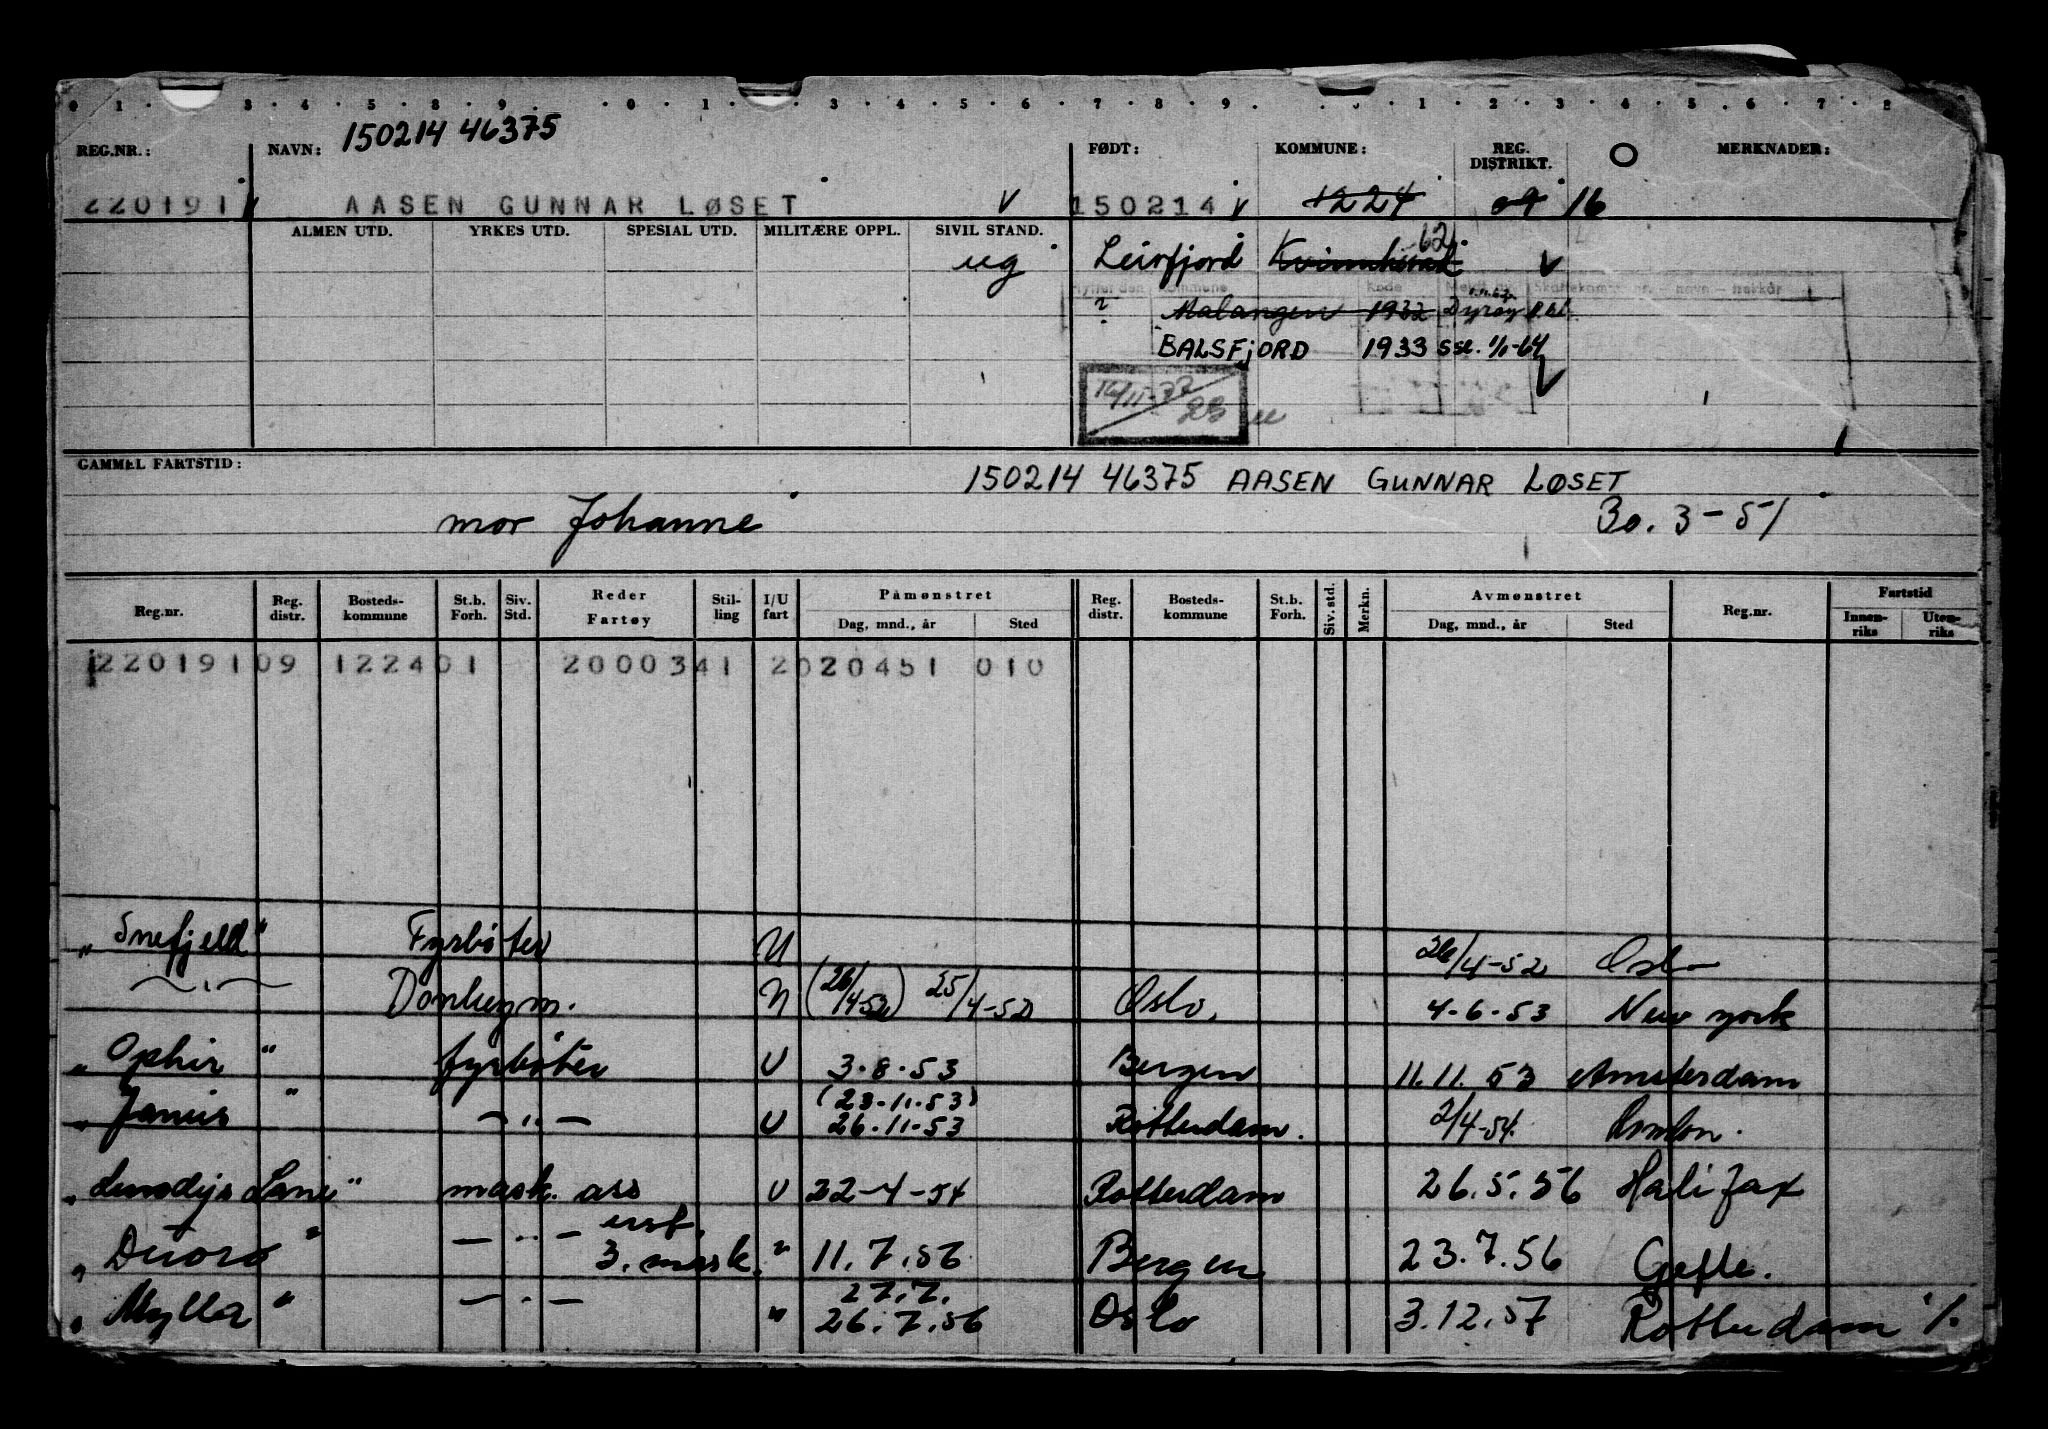 0 1 . 3 . 4 . 5 . 8 . 9 . 0 . 1 . 3 . 4 . 5 . 6 . 7 . 8 . 9 . 0 . 1 . 2 . 3 . 4 . 5 . 6 . 7 . 8
REG.NR.: NAVN: 150214 46375 FØDT: KOMMUNE: REG. DISTRIKT. O MERKNADER:
220191 AASEN GUNNAR LØSET V 150214 V 1224 09 16
ALMEN UTD. YRKES UTD. SPESIAL UTD. MILITÆRE OPPL. SIVIL STAND.
ug Leirfjord Kvinnherad 62 V
Flyttet den Kommune Kode
? Malangen 1932 Dyrøy
BALSFJORD 1933 sse. 1/1-64
V
GAMMEL FARTSTID: 150214 46375 AASEN GUNNAR LØSET
mor Johanne 30. 3-51
Reg.nr. Reg. distr. Bosteds-kommune St.b. Forh. Siv. Std. Reder Fartøy Stil-ling I/U fart Påmønstret Dag, mnd., år Sted Reg. distr. Bosteds-kommune St.b. Forh. Siv. std. Merkn. Avmønstret Dag, mnd., år Sted Reg.nr. Fartstid Innen-riks Uten-riks
220191 09 1224 01 2000341 2020451 010
"Snefjeld" Fyrbøter U 26/4-52 Oslo
— " — Donkeym. U (26/4-52) 25/4-52 Oslo. 4-6-53 New york
"Ophir" fyrbøter U 3-8-53 Bergen 11.11.53 Amsterdam
(23-11-53)
"Janus" — " — U 26-11-53 Rotterdam. 2/4-54.
"Lundys Lane" mask. ass U 22-4-54 Rotterdam 26.5.56 Halifax
— " —
"Duoro" 3. mask. " 11.7.56 Bergen 23.7.56 Gefle.
27.7.
"Mylla" — " — " 26.7.56 Oslo 3.12.57 Rotterdam %.